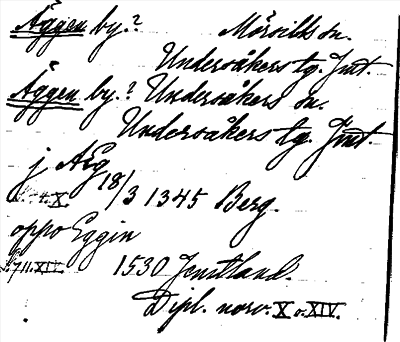 Äggen by.? Mörsills sn.
Undersåkers tg. Jmt.
Äggen by.? Undersåkers sn.
Undersåkers tg. Jmt.
j Æg
18/3 1345 Berg.
oppo Eggin
1530 Jemtland.
Dipl. norv. X o. XIV.